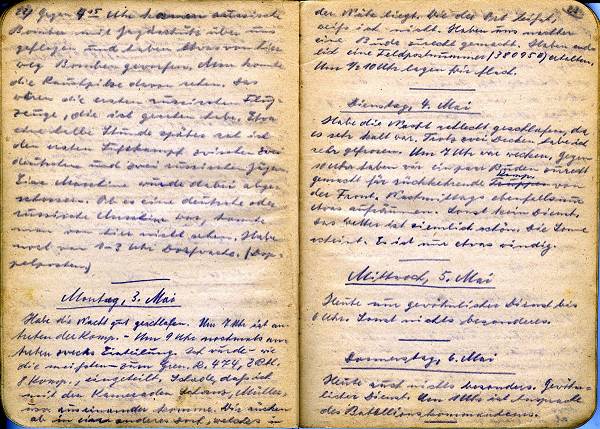 Gegen 4 05 Uhr kamen russische
Bomber mit Jagdschutz über uns
geflogen und haben etwas von hier
weg Bomben geworfen. Man konnte
die Rauchpilze davon sehen. Das
waren die ersten russischen Flug-
zeuge, die ich gesehen habe. Etwa
eine halbe Stunde später sah ich
den ersten Luftkampf zwischen zwei
deutschen und zwei russischen Jägern.
Eine Maschine wurde dabei abge-
schossen. Ob es eine deutsche oder
russische Maschine war, konnte
man von hier nicht sehen. Habe
noch von 1-2 Uhr Dorfwache. (Dop-
pelposten)
Montag, 3. Mai
Habe die Nacht gut geschlafen. Um 7 Uhr ist an-
treten der Komp. - Um 9 Uhr nochmals an-
treten zwecks Einteilung. Ich wurde - wie
die meisten - zum Gren. R. 474,
8 Komp., eingeteilt. Schade, daß ich
mit den Kameraden Müller,
auseinander komme. Die
ab in ein anderes Dorf, welches in
der Nähe liegt. Wie der Ort heißt,
weiß ich nicht. Haben uns nachher
eine Bude zurecht gemacht. Haben auch
eine Feldpostnummer (38095 D) erhalten.
Um 1/2 10 Uhr lagen wir flach.
Dienstag, 4. Mai
Habe die Nacht schlecht geschlafen, da
es sehr kalt war. Trotz zwei Decken, habe ich
sehr gefroren. Um 7 Uhr war wecken. Gegen
10 Uhr haben wir ein paar Buden zurecht
gemacht für zurückkehrende Truppen von
der Front. Nachmittags ebenfalls
etwas aufräumen. Sonst kein Dienst.
Das Wetter ist ziemlich schön. Die Sonne
scheint. Es ist nur etwas windig.
Mittwoch, 5. Mai
Heute nur gewöhnlicher Dienst bis
6 Uhr. Sonst nichts besonderes.
Donnerstag, 6. Mai
Heute auch nichts besonders. Gewöhn-
licher Dienst. Um Uhr ist Ansprache
des Bataillonskommandeurs.